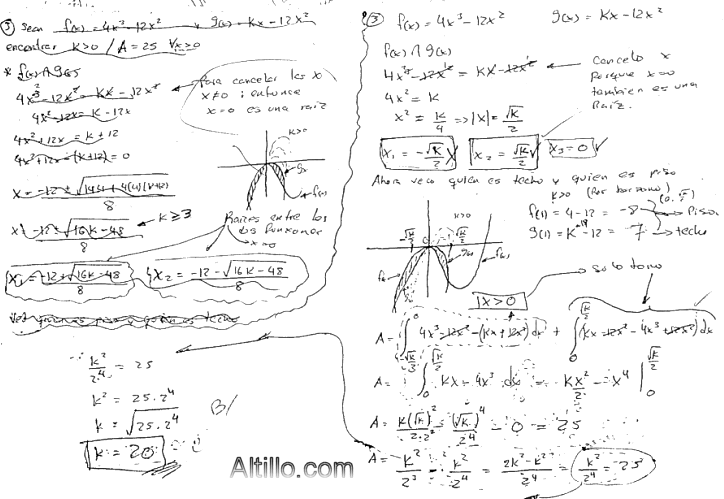 ③ Sean f(x) = 4x³-12x² y g(x) = Kx-12x²
encontrar K>0 / A=25 ∀x>0
* f(x) ∩ g(x)
4x³-12x² = Kx-12x²
4x²-12x = K-12x
4x²+12x = K+12
4x²+12x-(K+12)=0
Para cancelar las x
x≠0 ; entonces
x=0 es una raíz
K>0
f(x)
8
x = -12 ± √16K-48
8
← K≥3
Raíces entre las
dos funciones
x=0
x₁ = -12+√16K-48
8
y x₂ = -12-√16K-48
8
K²/2⁴ = 25
K² = 25.2⁴
K = √25.2⁴
K = 20
B/
③ f(x) = 4x³-12x² g(x) = Kx-12x²
f(x) ∩ g(x)
4x³-12x² = Kx-12x²
4x² = K
x² = K/4 => |x| = √K/2
Cancelo x
Porque x=0
también es una
Raíz.
x₁ = -√K/2 x₂ = √K/2 x₃=0
Ahora veo quien es techo y quien es piso
K>0 (Por
f(1) = 4-12 = -8 → Piso
g(1) = K-12 = -7 → techo
K>0
-√K/2 0 √K/2
f(x)
x>0
Solo tomo
A = ∫ 4x³-12x²-(Kx+12x²) dx + ∫ (Kx-12x²-4x³+12x²) dx
A = ∫ Kx-4x³ dx = Kx²/2 - x⁴ |
A = K(√K)²/2.2² - (√K)⁴/2⁴ - 0 = 25
A = K²/2³ - K²/2⁴ = 2K²-K²/2⁴ = K²/2⁴ = 25
Altillo.com